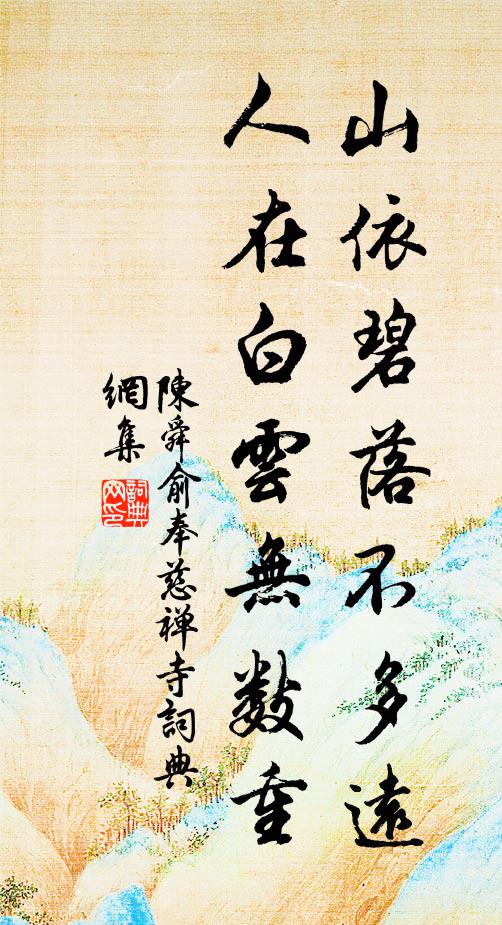 山依碧落不多遠
人在白雲無數重
陳舜俞奉慈禅寺詞典
網集
詞典
网印